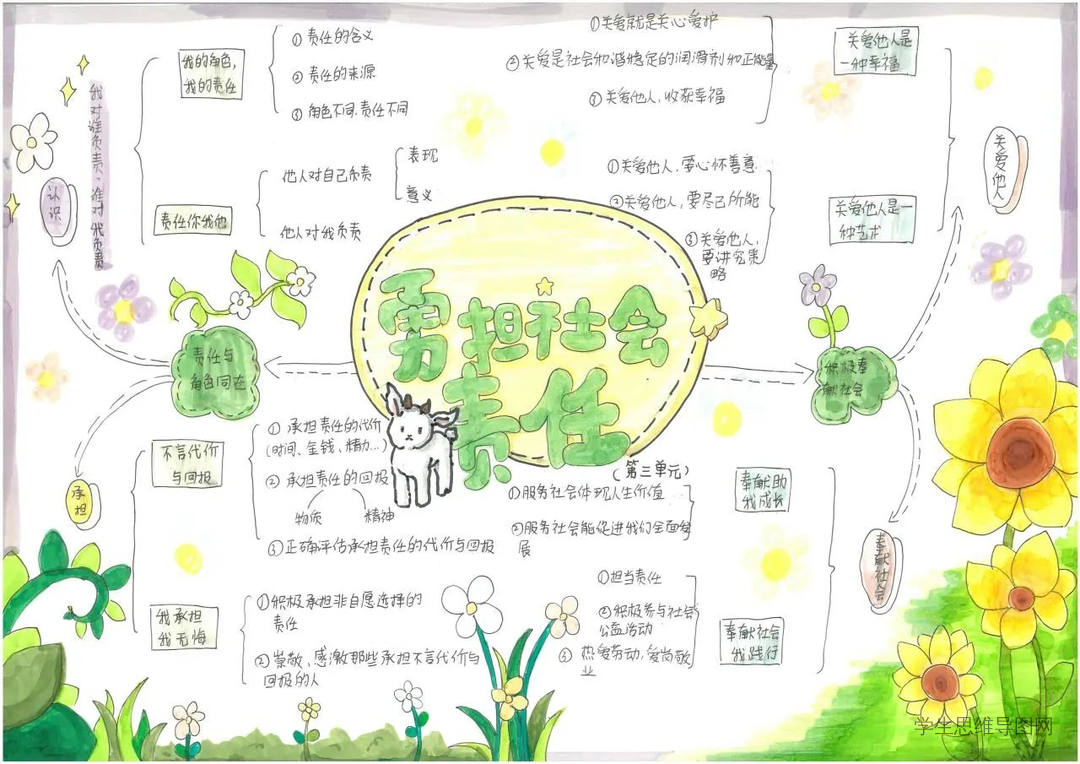 勇担社会
责任
(第三单元)
责任与
角色同在
认识
我对谁负责,谁对我负责
我的角色,
我的责任
①责任的含义
②责任的来源
③角色不同,责任不同
责任你我他
他人对自己负责
表现
意义
他人对我负责
承担
不言代价
与回报
①承担责任的代价
(时间、金钱、精力...)
②承担责任的回报
物质
精神
③正确评估承担责任的代价与回报
我承担
我无悔
①积极承担非自愿选择的
责任
②崇敬、感激那些承担不言代价与
回报的人
积极奉
献社会
关爱他人
关爱他人是
一种幸福
①关爱就是关心爱护
②关爱是社会和谐稳定的润滑剂和正能量
③关爱他人,收获幸福
关爱他人是一
种艺术
①关爱他人,要心怀善意
②关爱他人,要尽己所能
③关爱他人,
要讲究策
略
奉献社会
奉献助
我成长
①服务社会体现人生价值
②服务社会能促进我们全面发
展
奉献社会
我践行
①担当责任
②积极参与社会
公益活动
③热爱劳动,爱岗敬
业
学生思维导图网